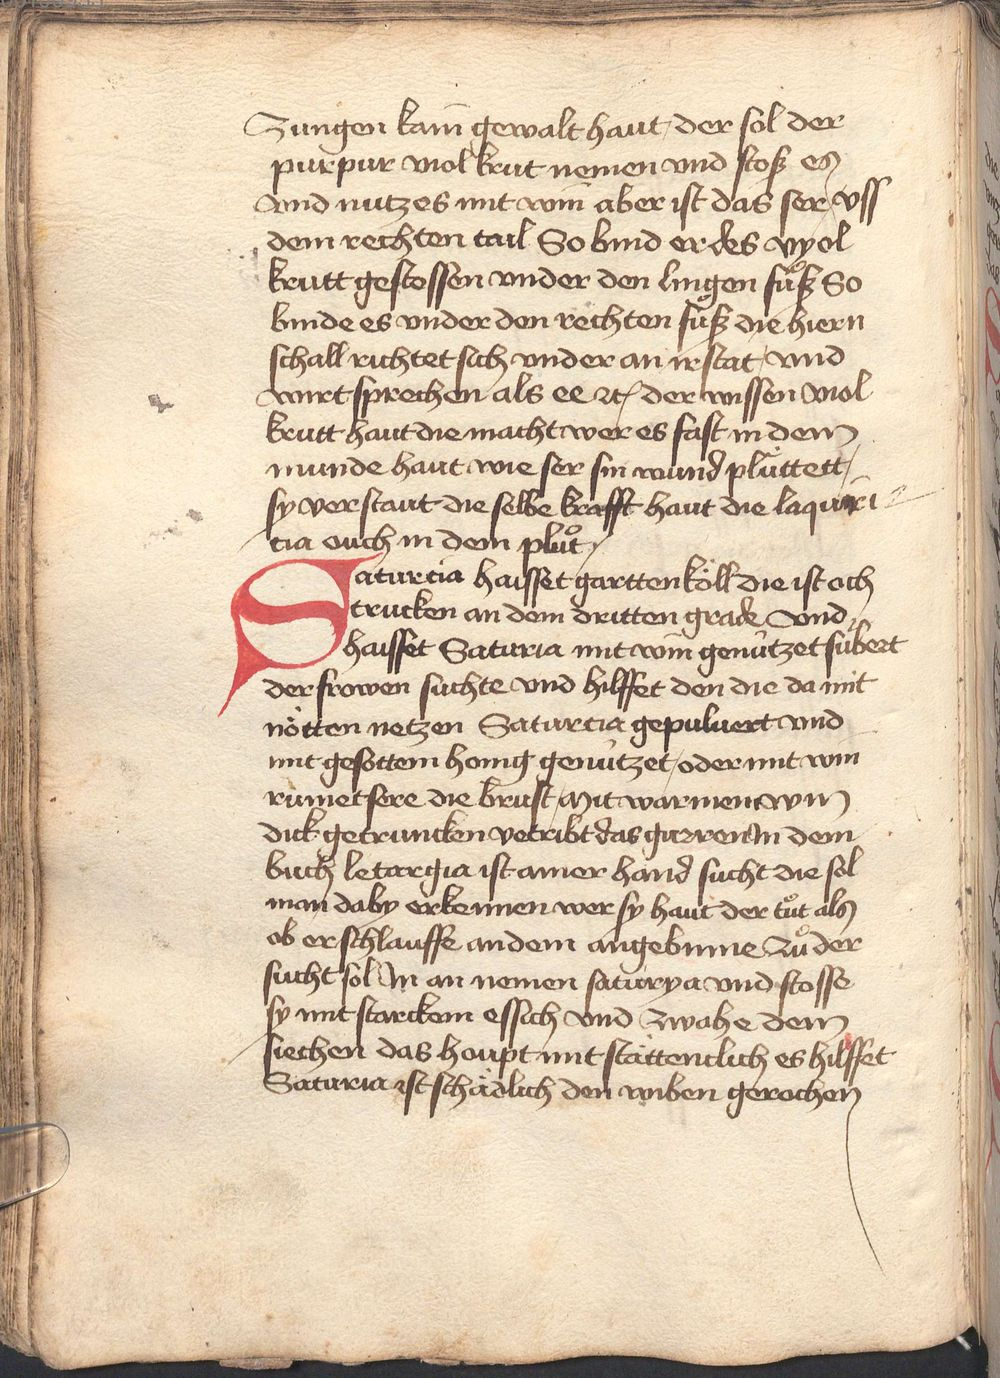 Zungen kain gewalt haut / der sol der
purpur viol krut nemen vnd stoß es
vnd nutz es mit win aber ist das ser vff
dem rechten tail So bind er des vyol
krutt gestossen vnder den lingen fůß So
binde es vnder den rechten fůß die hiern
schall richtet sich vnder an ir stat / vnd
wirt sprechen als ee ꝛc der wissen viol
krutt haut die macht wer es fast in dem
munde haut wie ser sin wund plůttett /
sy verstaut die selbe krafft haut die laquiri
cia ouch in dem plůt /
Saturcia haisset gartten köll die ist och
trucken an dem dritten grade vnd
haisset Saturia mit win genützet sübert
der frowen suchte vnd hilffet den die da mit
nötten netzen Saturcia gepuluert vnd
mit gesottem honig genützet / oder mit win
rumet sere die brust / Mit warmem win
dick getruncken vetribt das gurren In dem
buch letargia ist ainer hand sucht die sol
man daby erkennen wer sy haut der tůt als
ob er schlauffe an dem angebinne Zů der
sucht sol In an nemen saturya vnd stosse
sy mit starckem essich vnd zwahe dem
siechen das houpt mit stättenclich es hilffet
Saturia ist schädlich den wiben gerochen